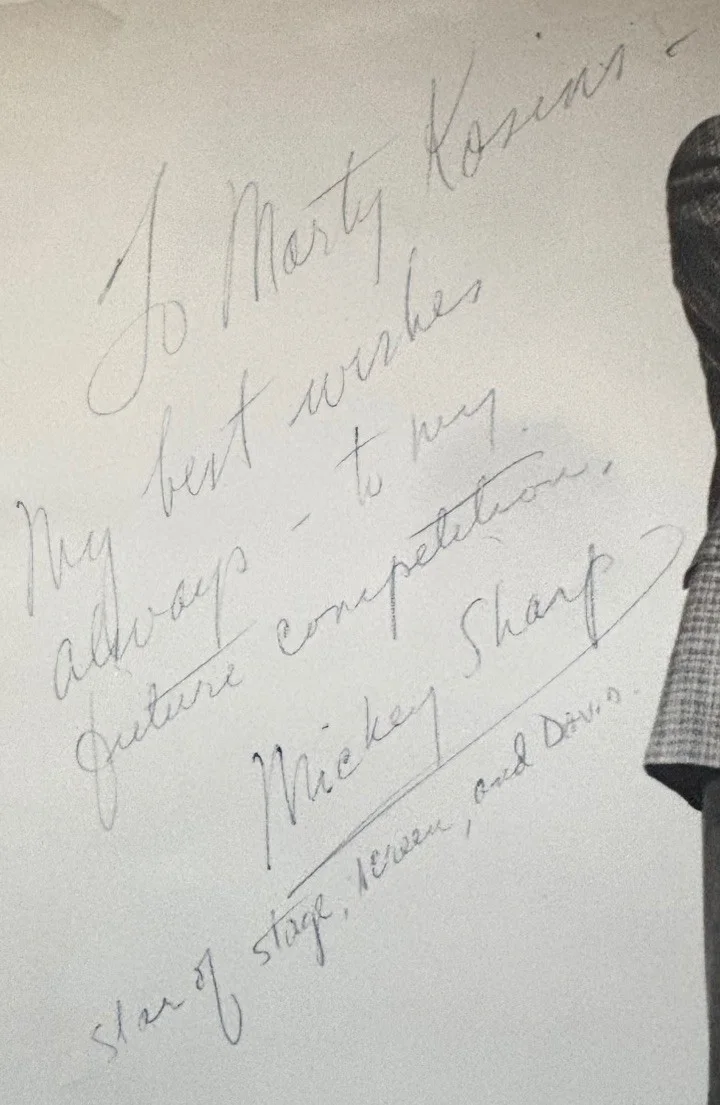 To Marty Kosins -
My best wishes
always - to my
future competition.
Mickey Sharp
star of stage, screen, and Davis.